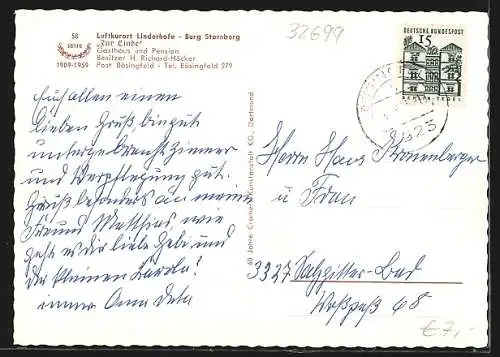 50
JAHRE
1909-1959
Luftkurort Linderhofe - Burg Sternberg
"Zur Linde"
Gasthaus und Pension
Besitzer H. Richard-Höcker
Post Bösingfeld - Tel. Bösingfeld 279
32699
DEUTSCHE BUNDESPOST
15
Euch allen einen
lieben Gruß, bin gut
untergebracht, Zimmer
und Verpflegung gut.
Gruß besonders an meinen
Freund Matthias, wie
geht es dir liebe Gabi und
der kleinen Carola?
immer Oma
60 Jahre Cramers Kunstanstalt KG, Dortmund
Herrn Hans Kronenberger
u Frau
3327 Salzgitter-Bad
68
€ 7,-